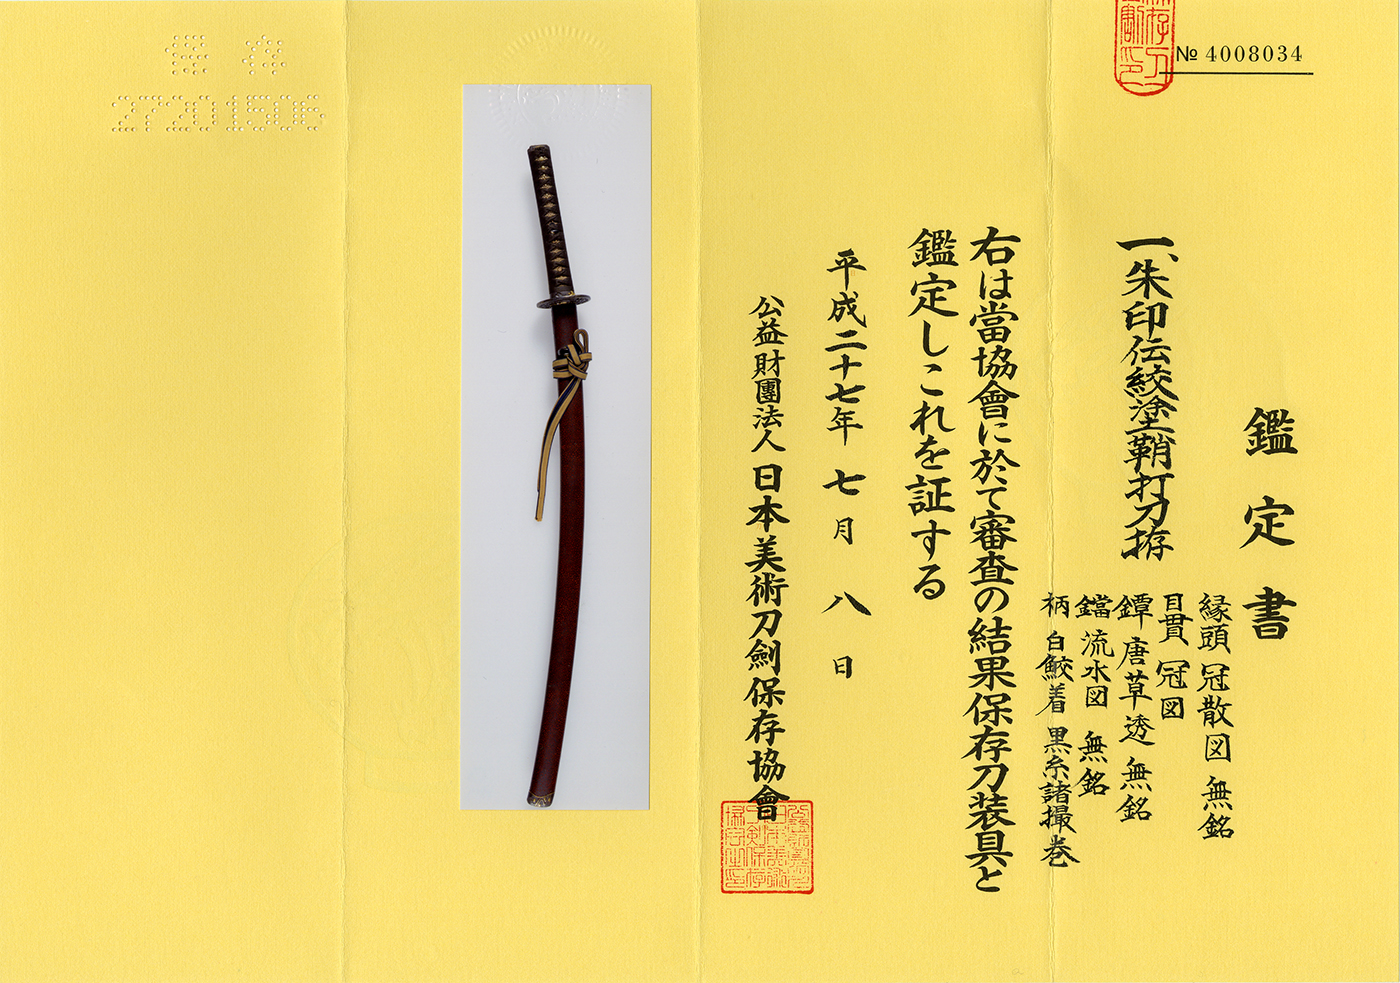 № 4008034
鑑定書
一、朱印伝絞塗鞘打刀拵
縁頭 冠散図 無銘
目貫 冠図
鐔 唐草透 無銘
鐺 流水図 無銘
柄 白鮫着 黒糸諸撮巻
右は當協會に於て審査の結果保存刀装具と
鑑定しこれを証する
平成二十七年 七月 八日
公益財團法人 日本美術刀劍保存協會
保存
27201506